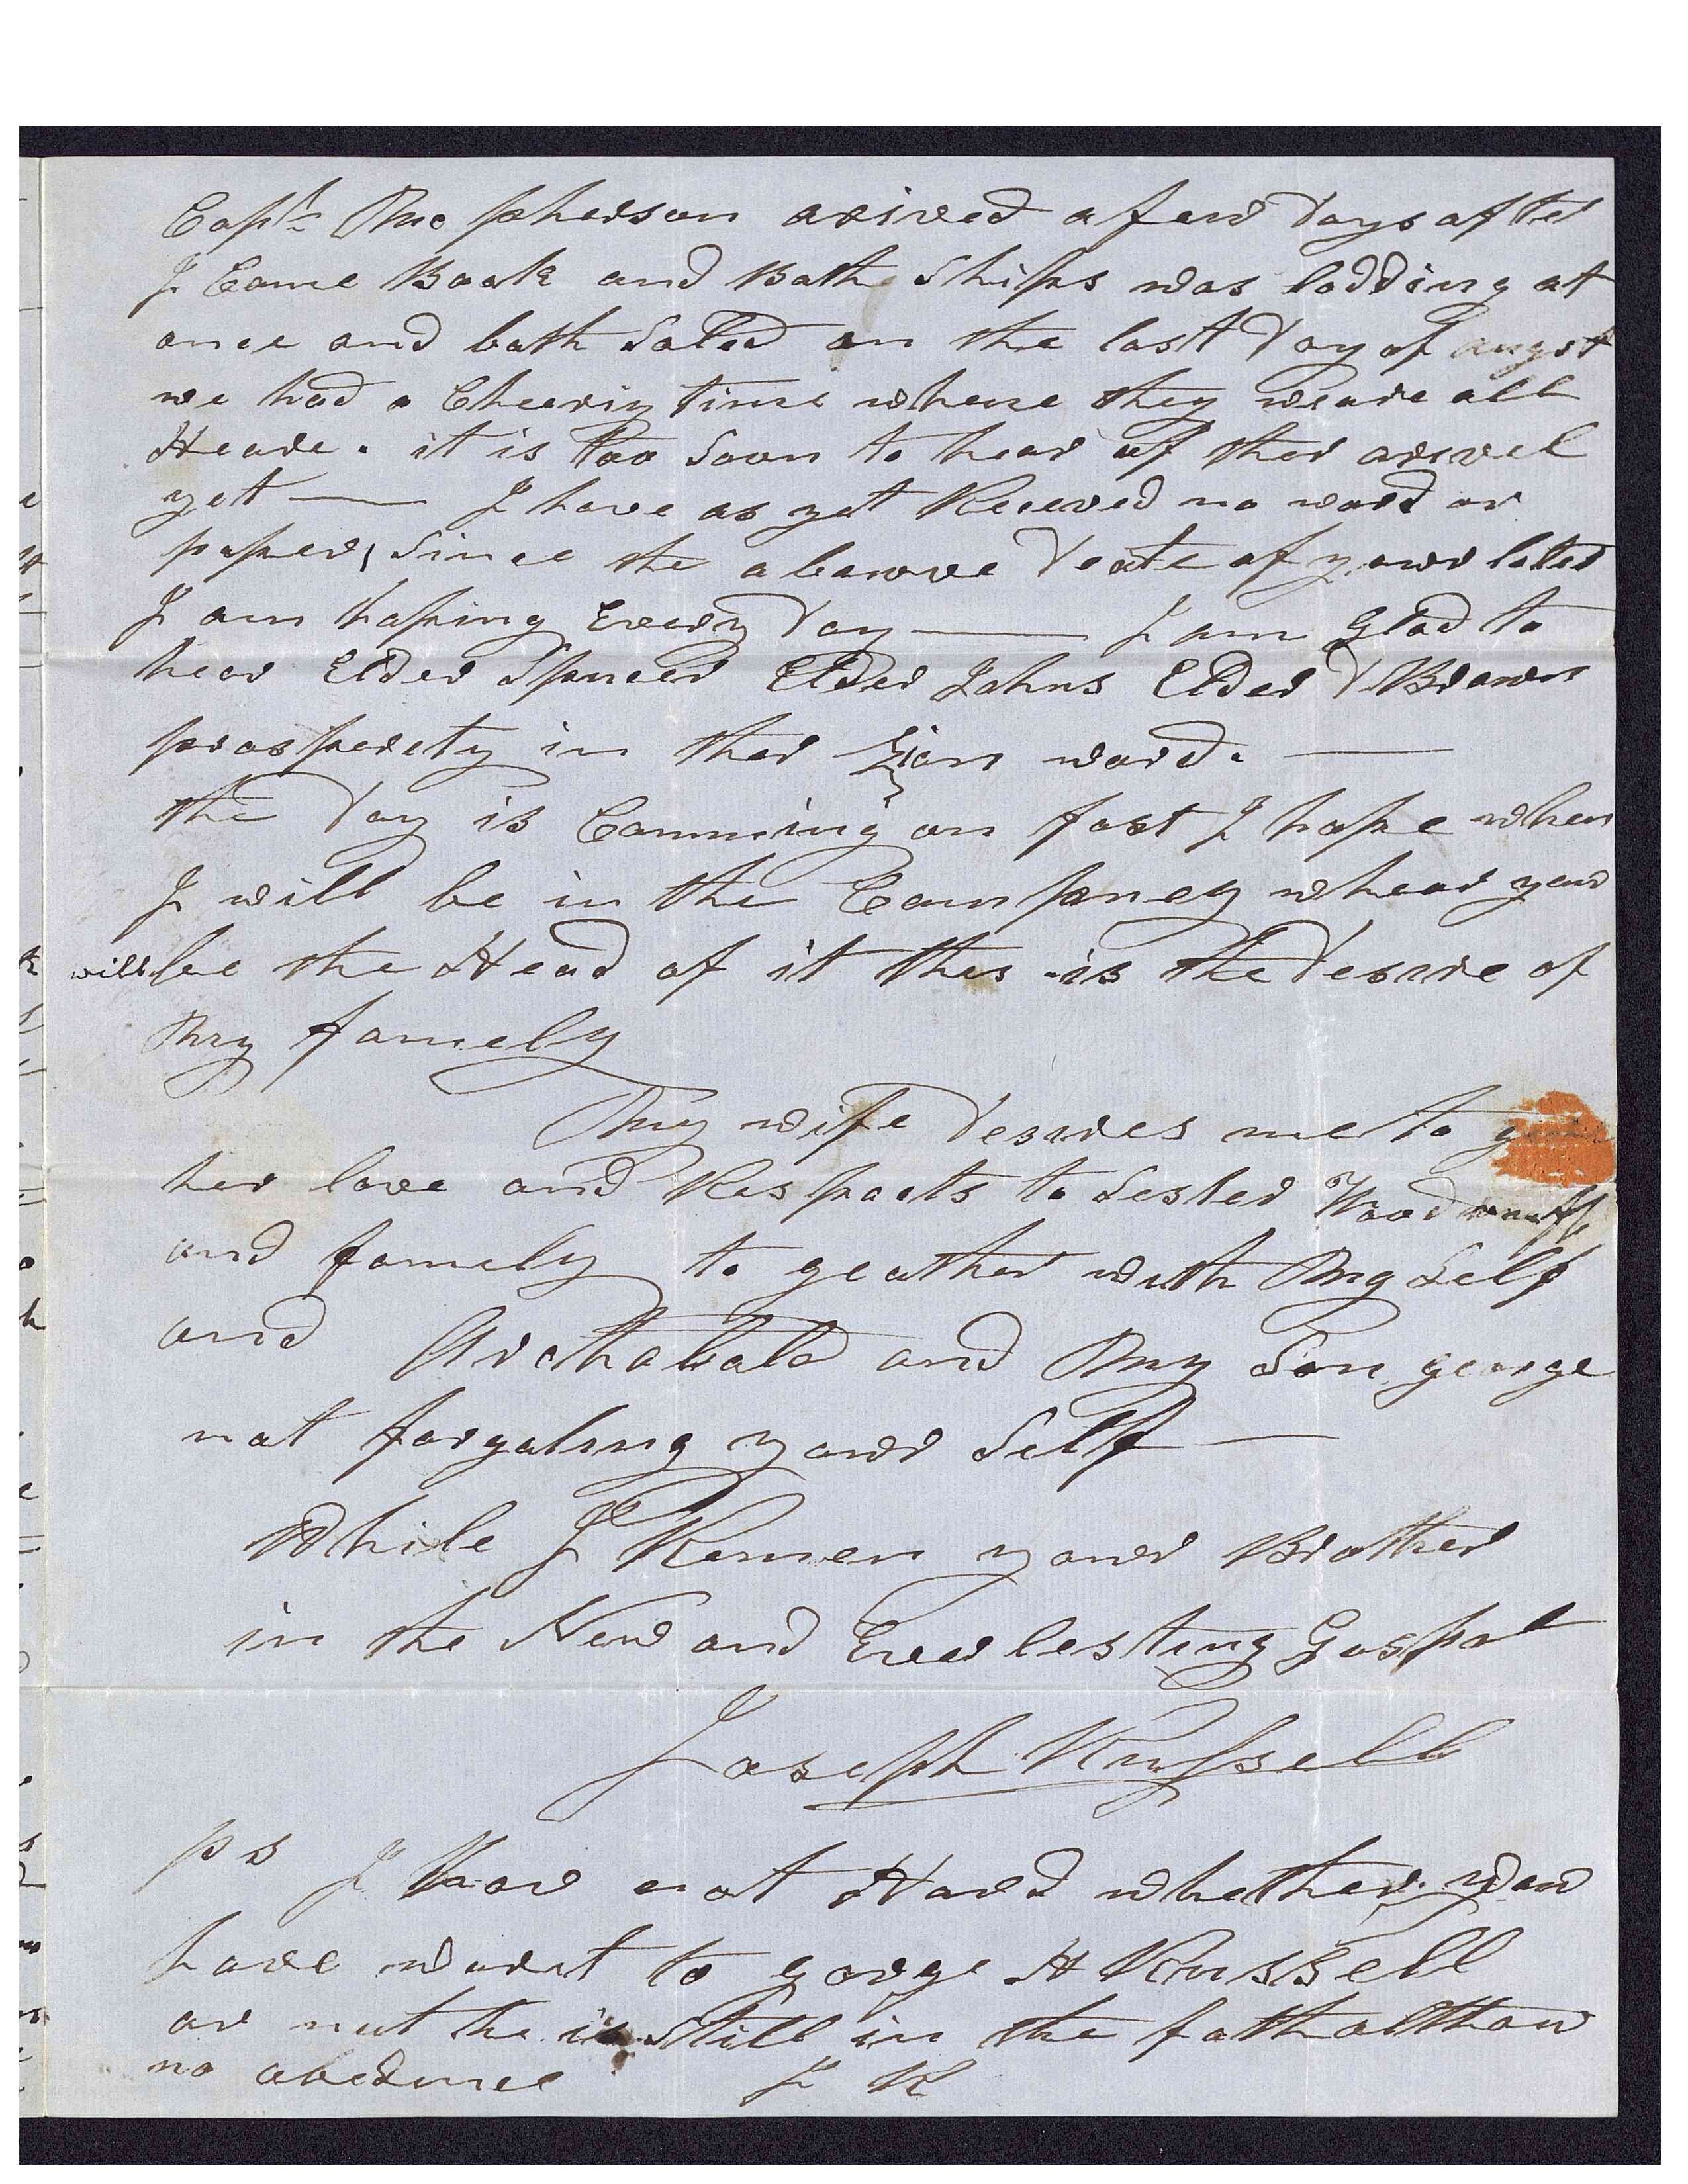 Capt Mc pherson arived a few days after
I Came Back and Both Ships was lodding at
once and both Saled on the last day of augst
we had a Cheeriy time whene they weare all
Heare. it is too Soon to hear of ther arivel
yet — I have as yet Receved no word or
paper, Since the abowve deate of your leter
I am hoping Every day — I am glad to
hear Elder Spncer Elder Johns Elder Brown
prosperety in ther Zion ward. —
the day is Comming on fast I hope when
I will be in the Compney whear you
will be the Head of it thes is the desire of
my famely
My wife desires me to
her love and Respects to Sester Woodruff
and famely to geather with My Self
and Archabald and My Son george
not forgeting your Self —
While I Remen your Brother
in the New and Everlesting Gospel
Joseph Russell
ps I have not Hard whether you
have wret to gorge H Russell
or not he is Still in the fath althow
no abedince J R